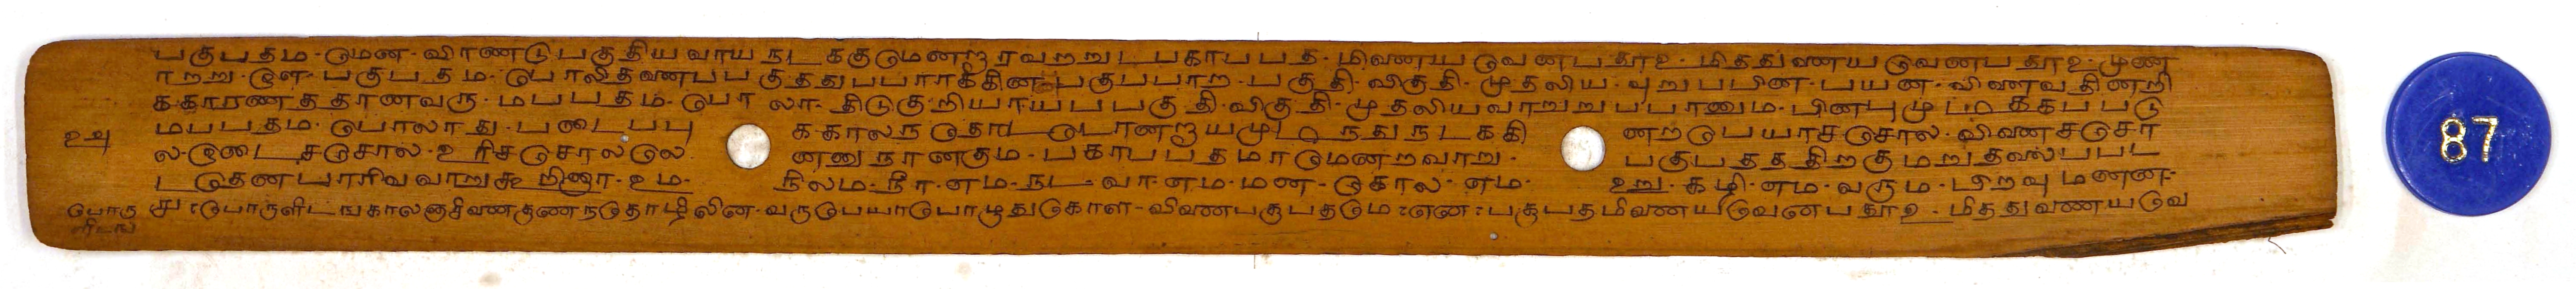 பகுபதம-மென-விரண்டு பகுதியவாய நடககுமெனறரவறறுட பகாபபத-மிவையெவைபதூஉ-மிததுணையெவைபதூஉ-முண
ாறறு-ளே-பகுபதம-போலிதவணபபகுததுபபாராககின பகுபபாற-பகுதி-விகுதி-முதலிய-வுறுபபின-பயன-விளைவதினறி
க-காரணததானவரு-மபபதம-போலா-திடுகுறியாயபபகுதி-விகுதி-முதலியவாறுறுபபானும-பினபுமுடிககபபடு
மபபதம-போலாது-படைபபு க-காலநதோடடோனறுயமுடிநது நடககி னறபெயரசசொல-வினைசசொ
ல-டைசசொல-உரிசசொலல னனு நானகும-பகாபபதமாமெனறவாறு- பகுபதததிறகு மறுதலைபபட
டதனபாரிவவாறு கூறினார-உம- நிலம-நீர-எம-நட-வா-எம-மன-கொல-எம- உறு-கழி-எம-வரும-பிறவு மனன-
சு:பொருளிடஙகாலஞசினைகுணநதொழிலின-வருபெயரபொழுதுகொள-வினைபகுபதமே:என:பகுபதமிவையெவைபதூஉ-மிததுணையெவ
உஎ
பொரு
ளிடங
87